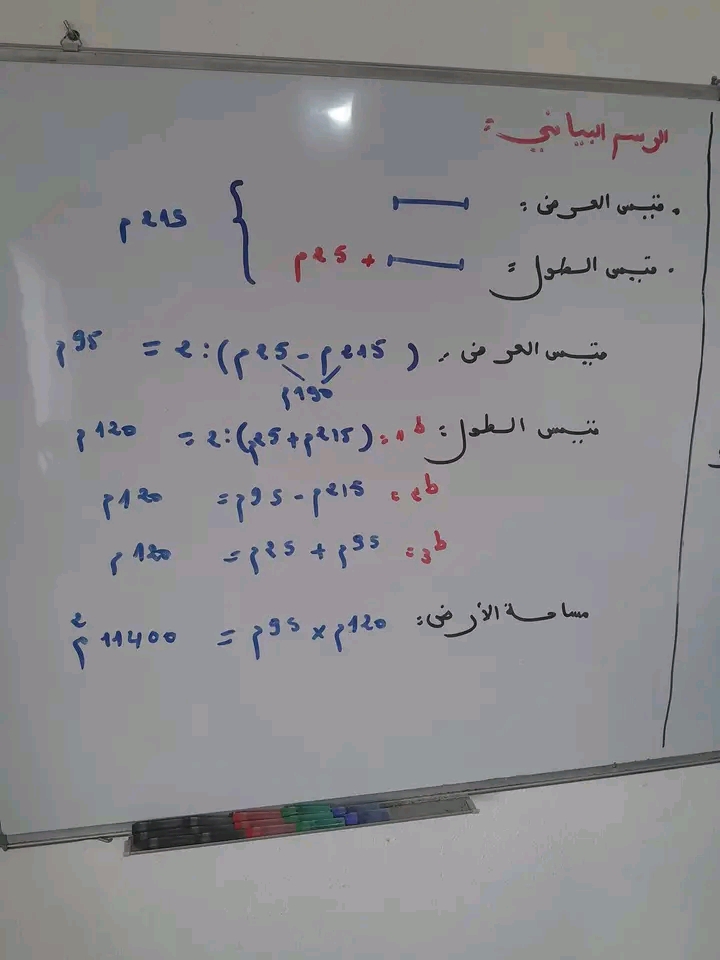 الرسم البياني :
. مقيس العرض :
215 م
. مقيس الطول : + 25 م
مقيس العرض : (215 م - 25 م) : 2 = 95 م
190 م
مقيس الطول : ط1 : (215 م + 25 م) : 2 = 120 م
ط2 : 215 م - 95 م = 120 م
ط3 : 95 م + 25 م = 120 م
مساحة الأرض : 120 م × 95 م = 11400 م²